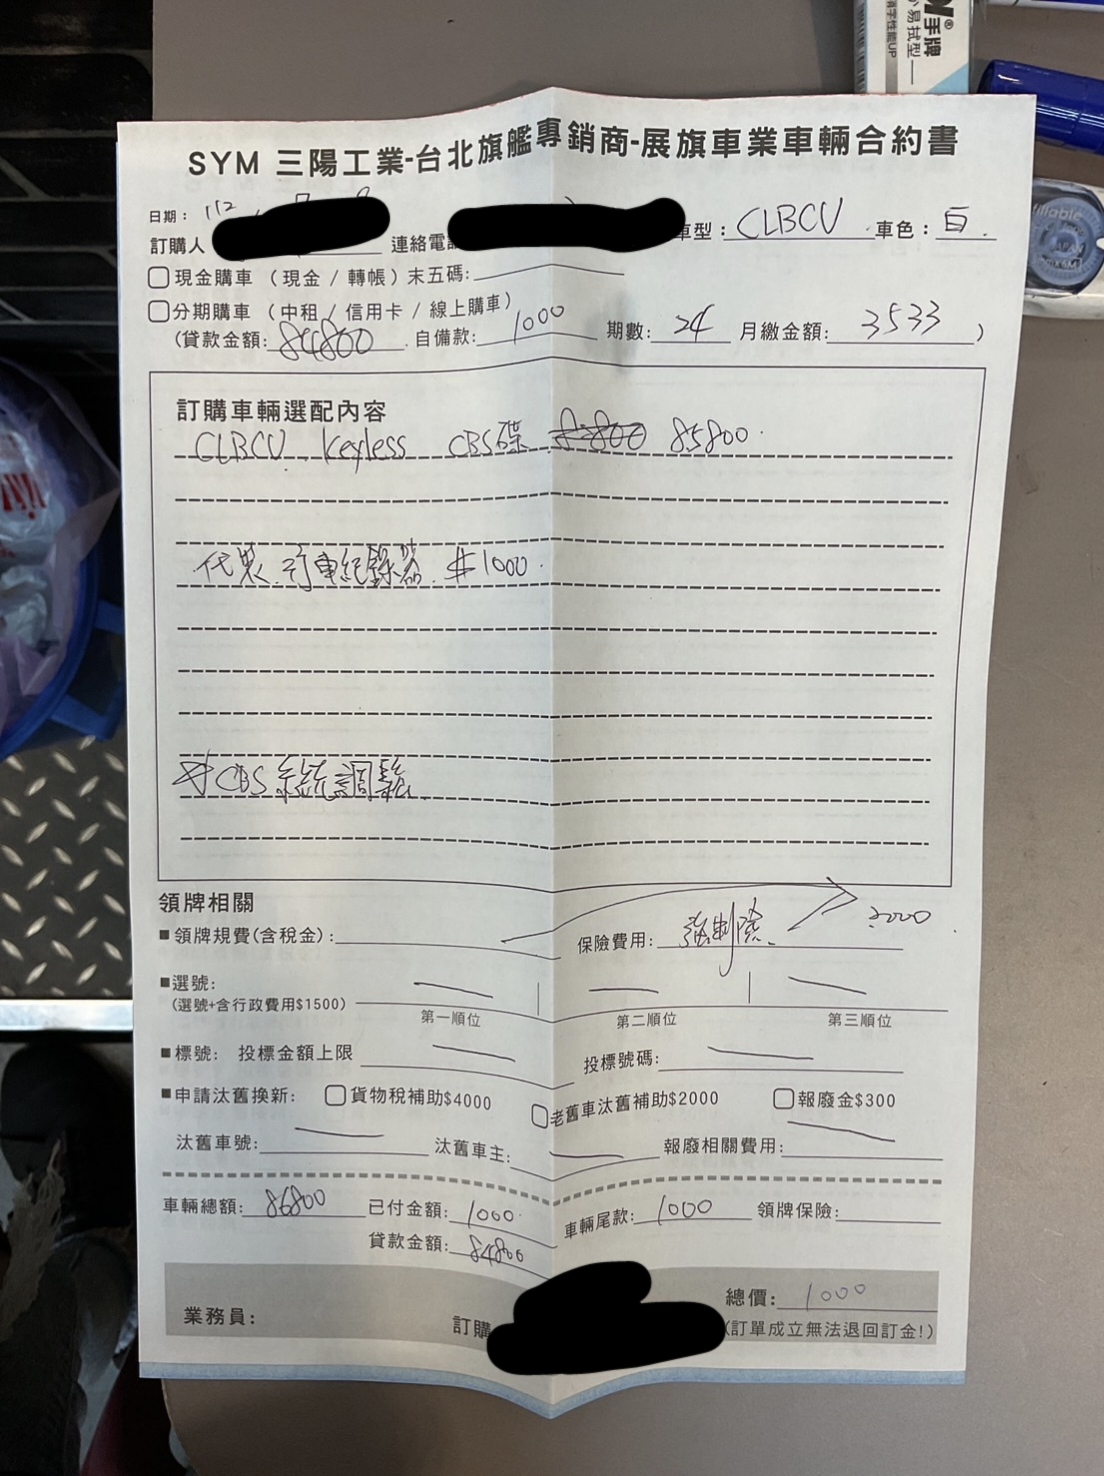 手牌®
易拭型
SYM 三陽工業-台北旗艦專銷商-展旗車業車輛合約書
日期: 112
訂購人 連絡電話 車型: CLBCU 車色: 白
現金購車 (現金 / 轉帳) 末五碼:
分期購車 (中租 / 信用卡 / 線上購車)
(貸款金額: 84800 自備款: 1000 期數: 24 月繳金額: 3533 )
訂購車輛選配內容
CLBCU Keyless CBS碟 85800
代裝 行車紀錄器 $1000
CBS系統調鬆
領牌相關
■領牌規費(含稅金): 保險費用: 強制險 2000
■選號:
(選號+含行政費用$1500)
第一順位 第二順位 第三順位
■標號: 投標金額上限 投標號碼:
■申請汰舊換新: 貨物稅補助$4000 老舊車汰舊補助$2000 報廢金$300
汰舊車號: 汰舊車主: 報廢相關費用:
車輛總額: 86800 已付金額: 1000 車輛尾款: 1000 領牌保險:
貸款金額: 84800
總價: 1000
業務員: 訂購 (訂單成立無法退回訂金!)